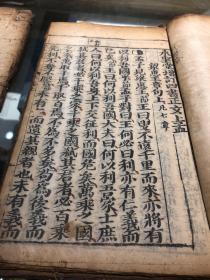 四書正文上孟
梁惠王章句上 凡七章
孟子見梁惠王王曰叟不遠千里而來亦將有
以利吾國乎孟子對曰王何必曰利亦有仁義而
已矣王曰何以利吾國大夫曰何以利吾家士庶
人曰何以利吾身上下交征利而國危矣萬乘之國
弒其君者必千乘之家千乘之國弒其君者必百乘
之家萬取千焉千取百焉不爲不多矣苟爲後義而
未有仁而遺其親者也未有義而